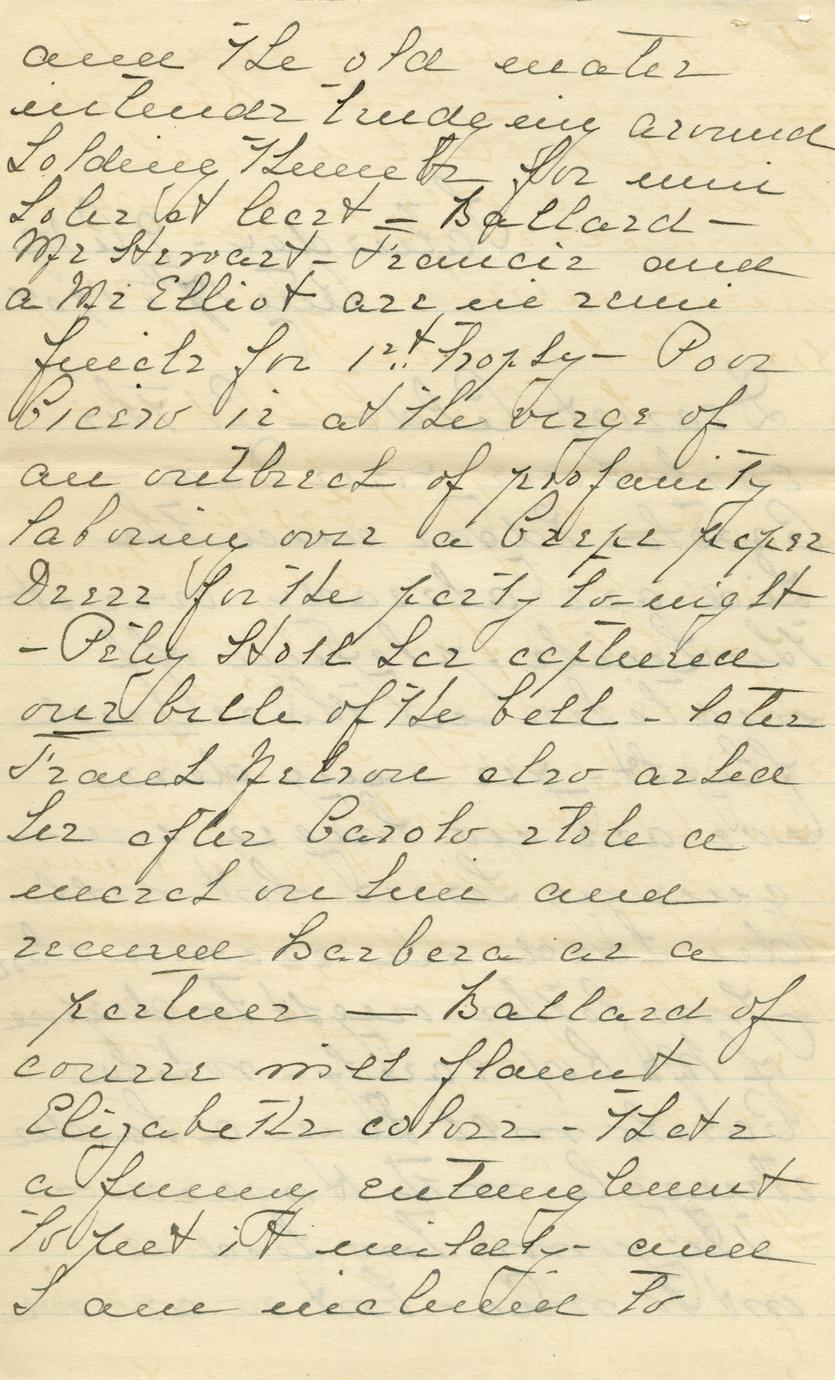 and the old mater
intends trudging around
holding thumbs for nine
holes at least = Ballard -
Mr Stewart - Francis and
a Mr Elliot are in semi
finals for 1st trophy - Poor
Cicero is at the verge of
an outbreak of profanity
laboring over a Crepe paper
Dress for the party to-night
- Petey Holt has captured
our belle of the ball - later
Frank Nelson also asked
her after Carolo stole a
march on him and
secured Barbera as a
partner — Ballard of
course will flaunt
Elizabeths colors - Thats
a funny entanglement
to put it mildly - and
I am inclined to